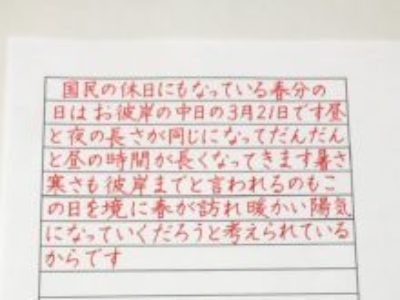 国民の休日にもなっている春分の
日はお彼岸の中日の3月21日です昼
と夜の長さが同じになってだんだん
と昼の時間が長くなってきます暑さ
寒さも彼岸までと言われるのもこ
の日を境に春が訪れ暖かい陽気
になっていくだろうと考えられている
からです